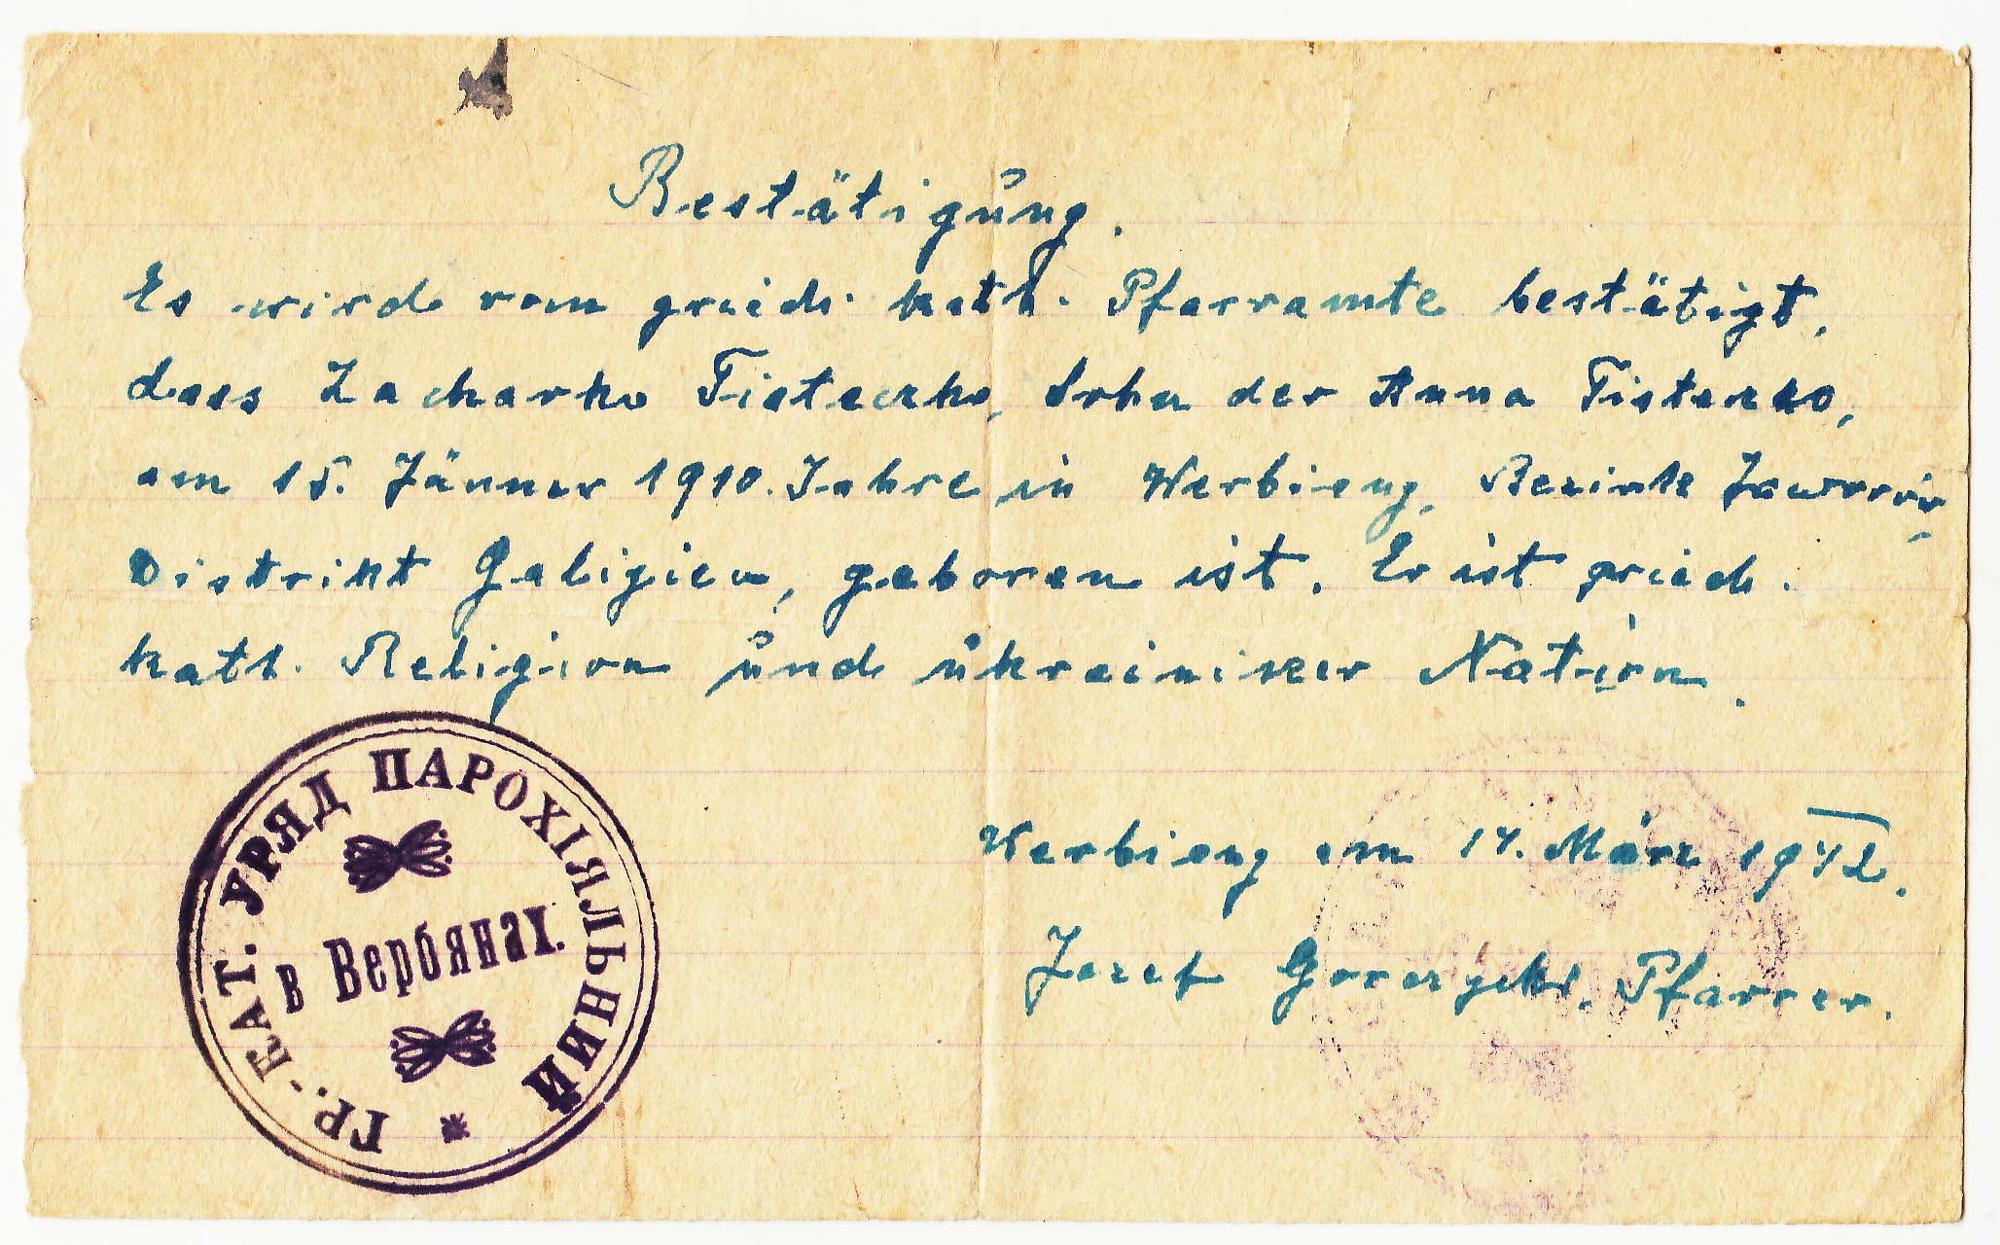 Bestätigung.
Es wird vom griech. kath. Pfarramte bestätigt,
dass Zacharko Tisteczko, Sohn der Anna Tisteczko,
am 15. Jänner 1910. Jahre in Werbiany, Bezirke Jaworów,
Distrikt Galizien, geboren ist. Er ist griech.
kath. Religion und ukrainiker Nation.
ГР.-КАТ. УРЯД ПАРОХІЯЛЬНИЙ
в Вербянах.
Werbiany am 14. März 1942.
Jozef Pfarrer.